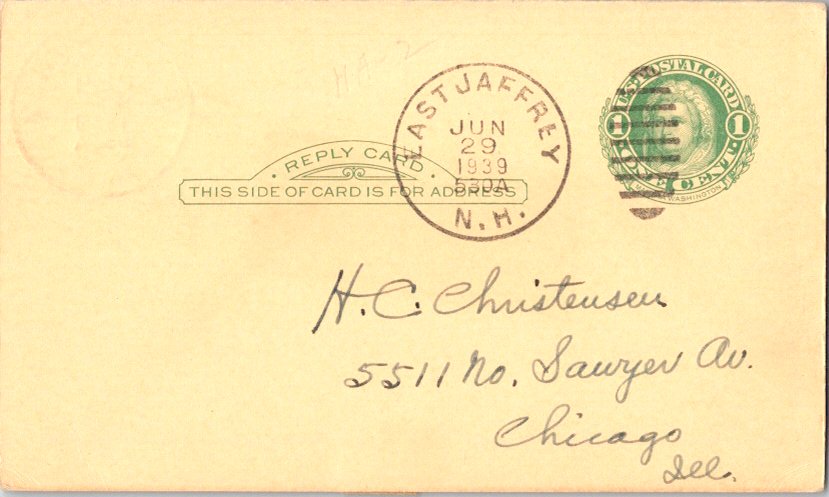 EAST JAFFREY
JUN
29
1939
530A
N.H.
U.S. POSTAL CARD
1 1
ONE CENT
MARTHA WASHINGTON
REPLY CARD
THIS SIDE OF CARD IS FOR ADDRESS
H. C. Christensen
5511 No. Sawyer Av.
Chicago
Ill.